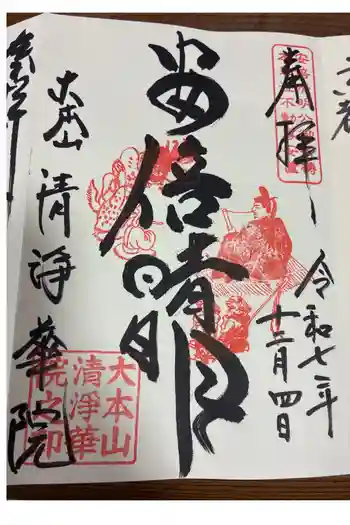 奉拝
令和七年
十二月四日
安倍晴明
大本山 清浄華院
大本山
清淨華
院之印